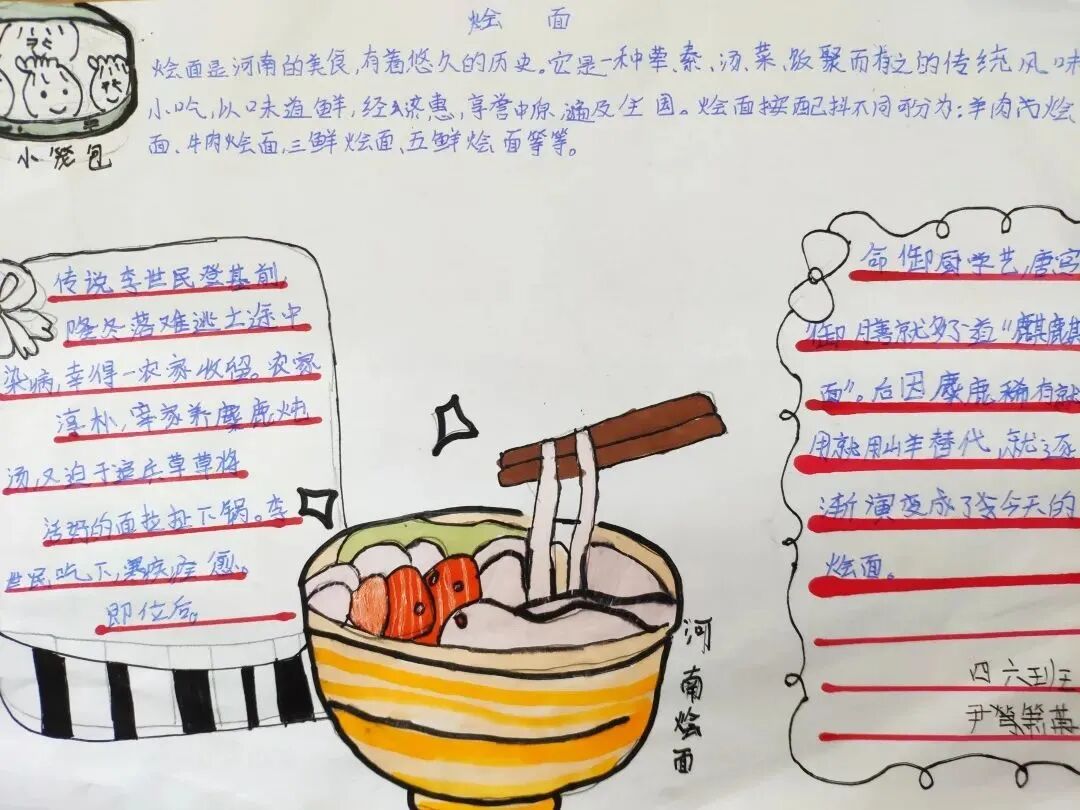 烩 面
烩面是河南的美食,有着悠久的历史。它是一种荤、素、汤、菜、饭聚而有之的传统风味
小吃,以味道鲜,经济惠,享誉中原遍及全国。烩面按配料不同可分为:羊肉烩
面、牛肉烩面,三鲜烩面、五鲜烩面等等。
小笼包
传说李世民登基前
隆冬落难逃亡途中
染病,幸得一农家收留。农家
淳朴,宰家养麋鹿炖
汤,又迫于追兵草草将
活好的面拉扯下锅。李
世民吃下,寒疾痊愈。
即位后。
命御厨学艺,唐宫
御膳就多了道“麒麟
面”。后因麋鹿稀有就
用就用山羊替代,就逐
渐演变成了今天的
烩面。
河南烩面
四 六班
尹